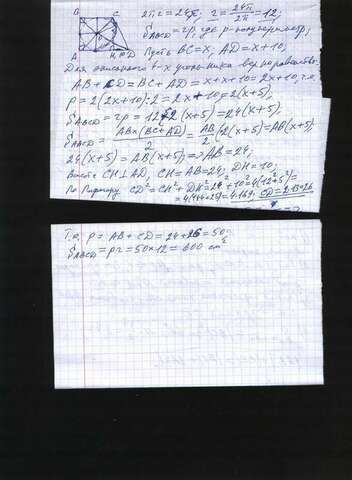 B C
A H D
2πr = 24π, r = 24π/2π = 12;
S_ABCD = rp, где p - полупериметр;
Пусть BC = x; AD = x + 10,
Для описанного 4-х угольника верно равенство:
AB + CD = BC + AD = x + x + 10 = 2x + 10, т.е.
p = 2(2x + 10):2 = 2x + 10 = 2(x + 5);
S_ABCD = rp = 12·2(x + 5) = 24(x + 5);
S_ABCD = AB×(BC + AD)/2 = AB/2·(2(x + 5) = AB(x + 5),
24(x + 5) = AB(x + 5) => AB = 24;
CH ⊥ AD, CH = AB = 24, DH = 10;
По Пифагору CD² = CH² + DH² = 24² + 10² = 4(12² + 5²) =
= 4(144 + 25) = 4·169, CD = 2·13 = 26
Т.к. p = AB + CD = 24 + 26 = 50,
S_ABCD = pr = 50×12 = 600 cm²